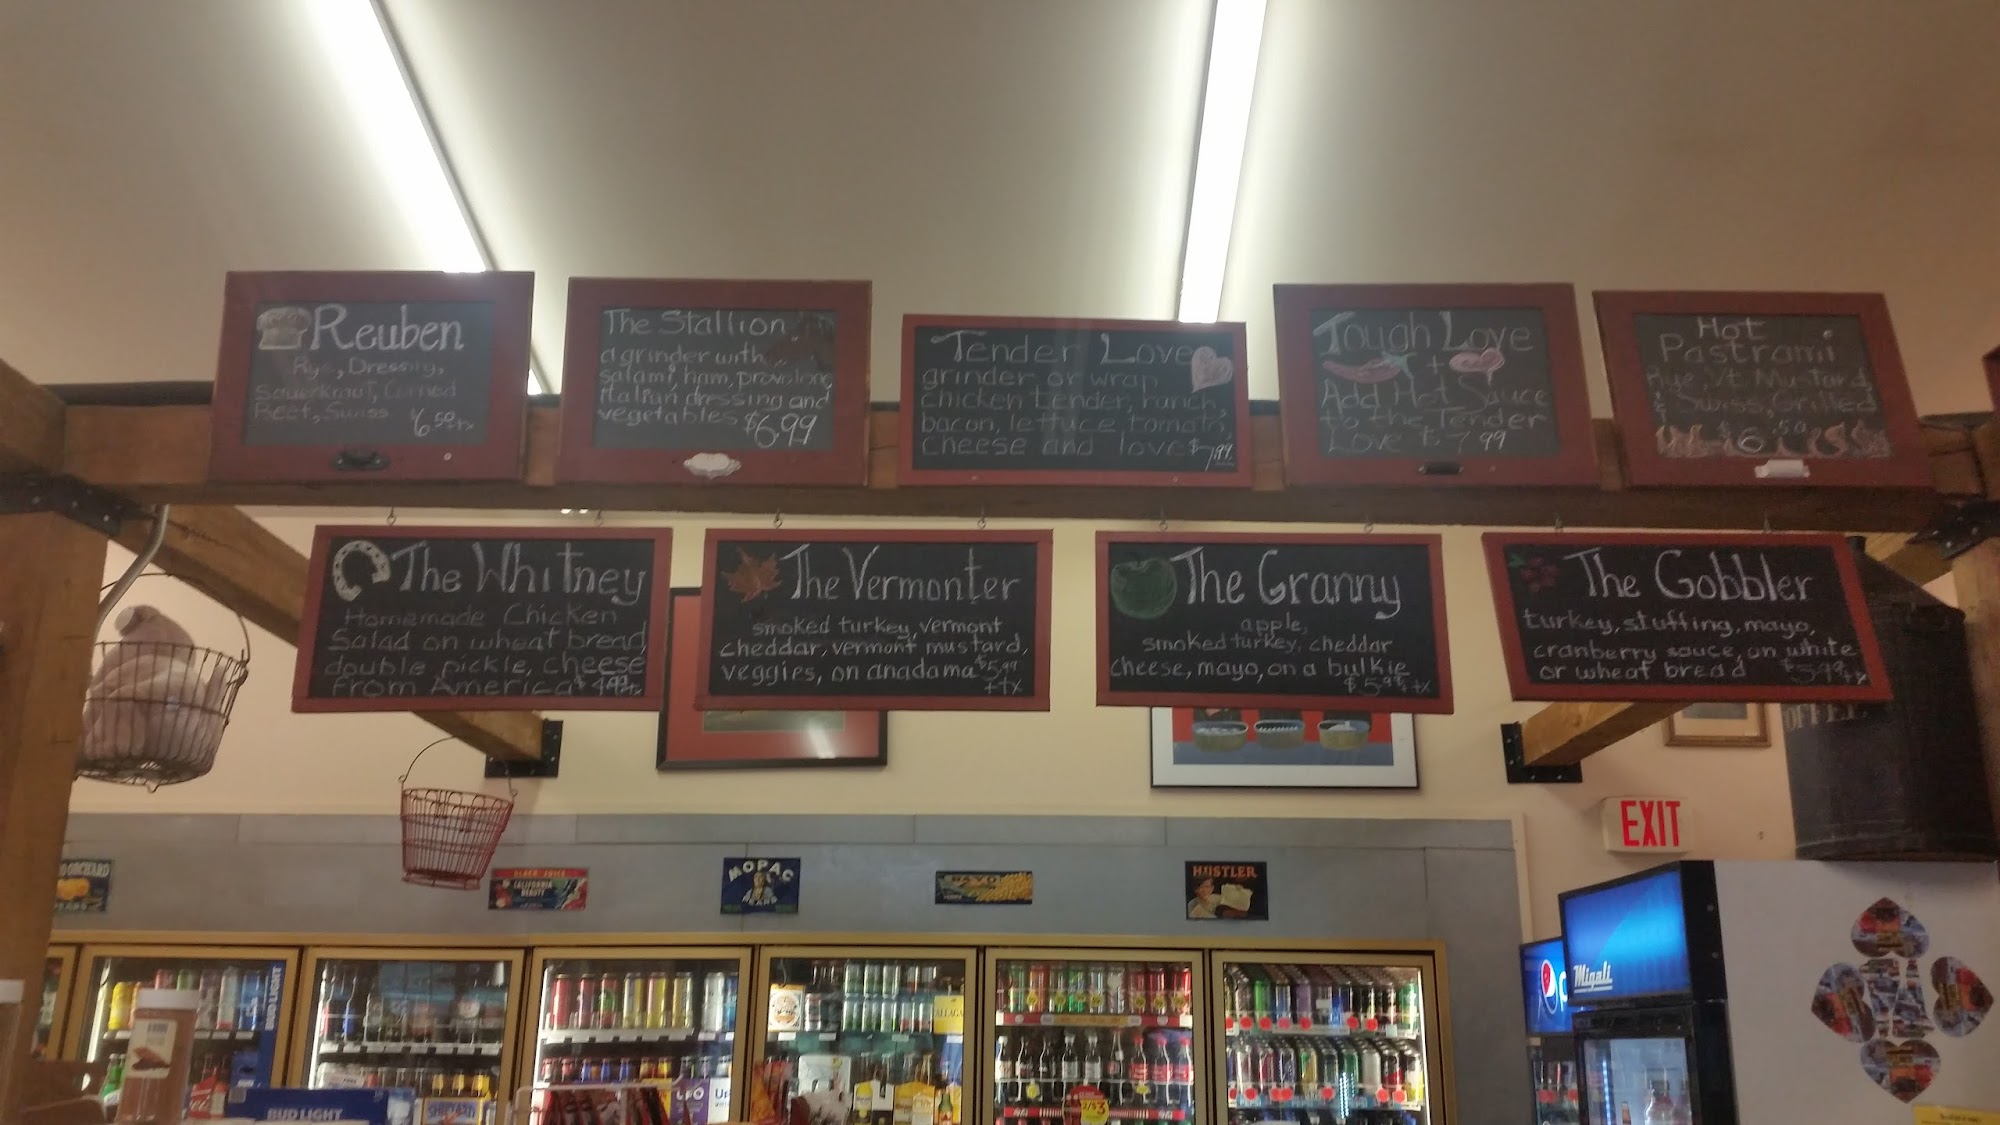 Reuben
Rye, Dressing,
Sauerkraut, Corned
Beef, Swiss
$6.50+tx
The Stallion
a grinder with
salami, ham, provolone,
italian dressing and
vegetables $6.99
Tender Love
grinder or wrap
chicken tender, ranch,
bacon, lettuce, tomato,
cheese and love $7.99
Tough Love
+
Add Hot Sauce
to the Tender
Love $7.99
Hot
Pastrami
Rye, Vt Mustard,
Swiss, Grilled
$6.50
The Whitney
Homemade Chicken
Salad on wheat bread,
double pickle, cheese
from America $4.99+tx
The Vermonter
smoked turkey, vermont
cheddar, vermont mustard,
veggies, on anadama $5.99
+tx
The Granny
apple,
smoked turkey, cheddar
cheese, mayo, on a bulkie
$5.99+tx
The Gobbler
turkey, stuffing, mayo,
cranberry sauce, on white
or wheat bread $5.99+tx
EXIT
ORCHARD
CALIFORNIA
BEAUTY
MOPAC
HUSTLER
Migali
BUD LIGHT
BUD LIGHT
UFO
2/$3